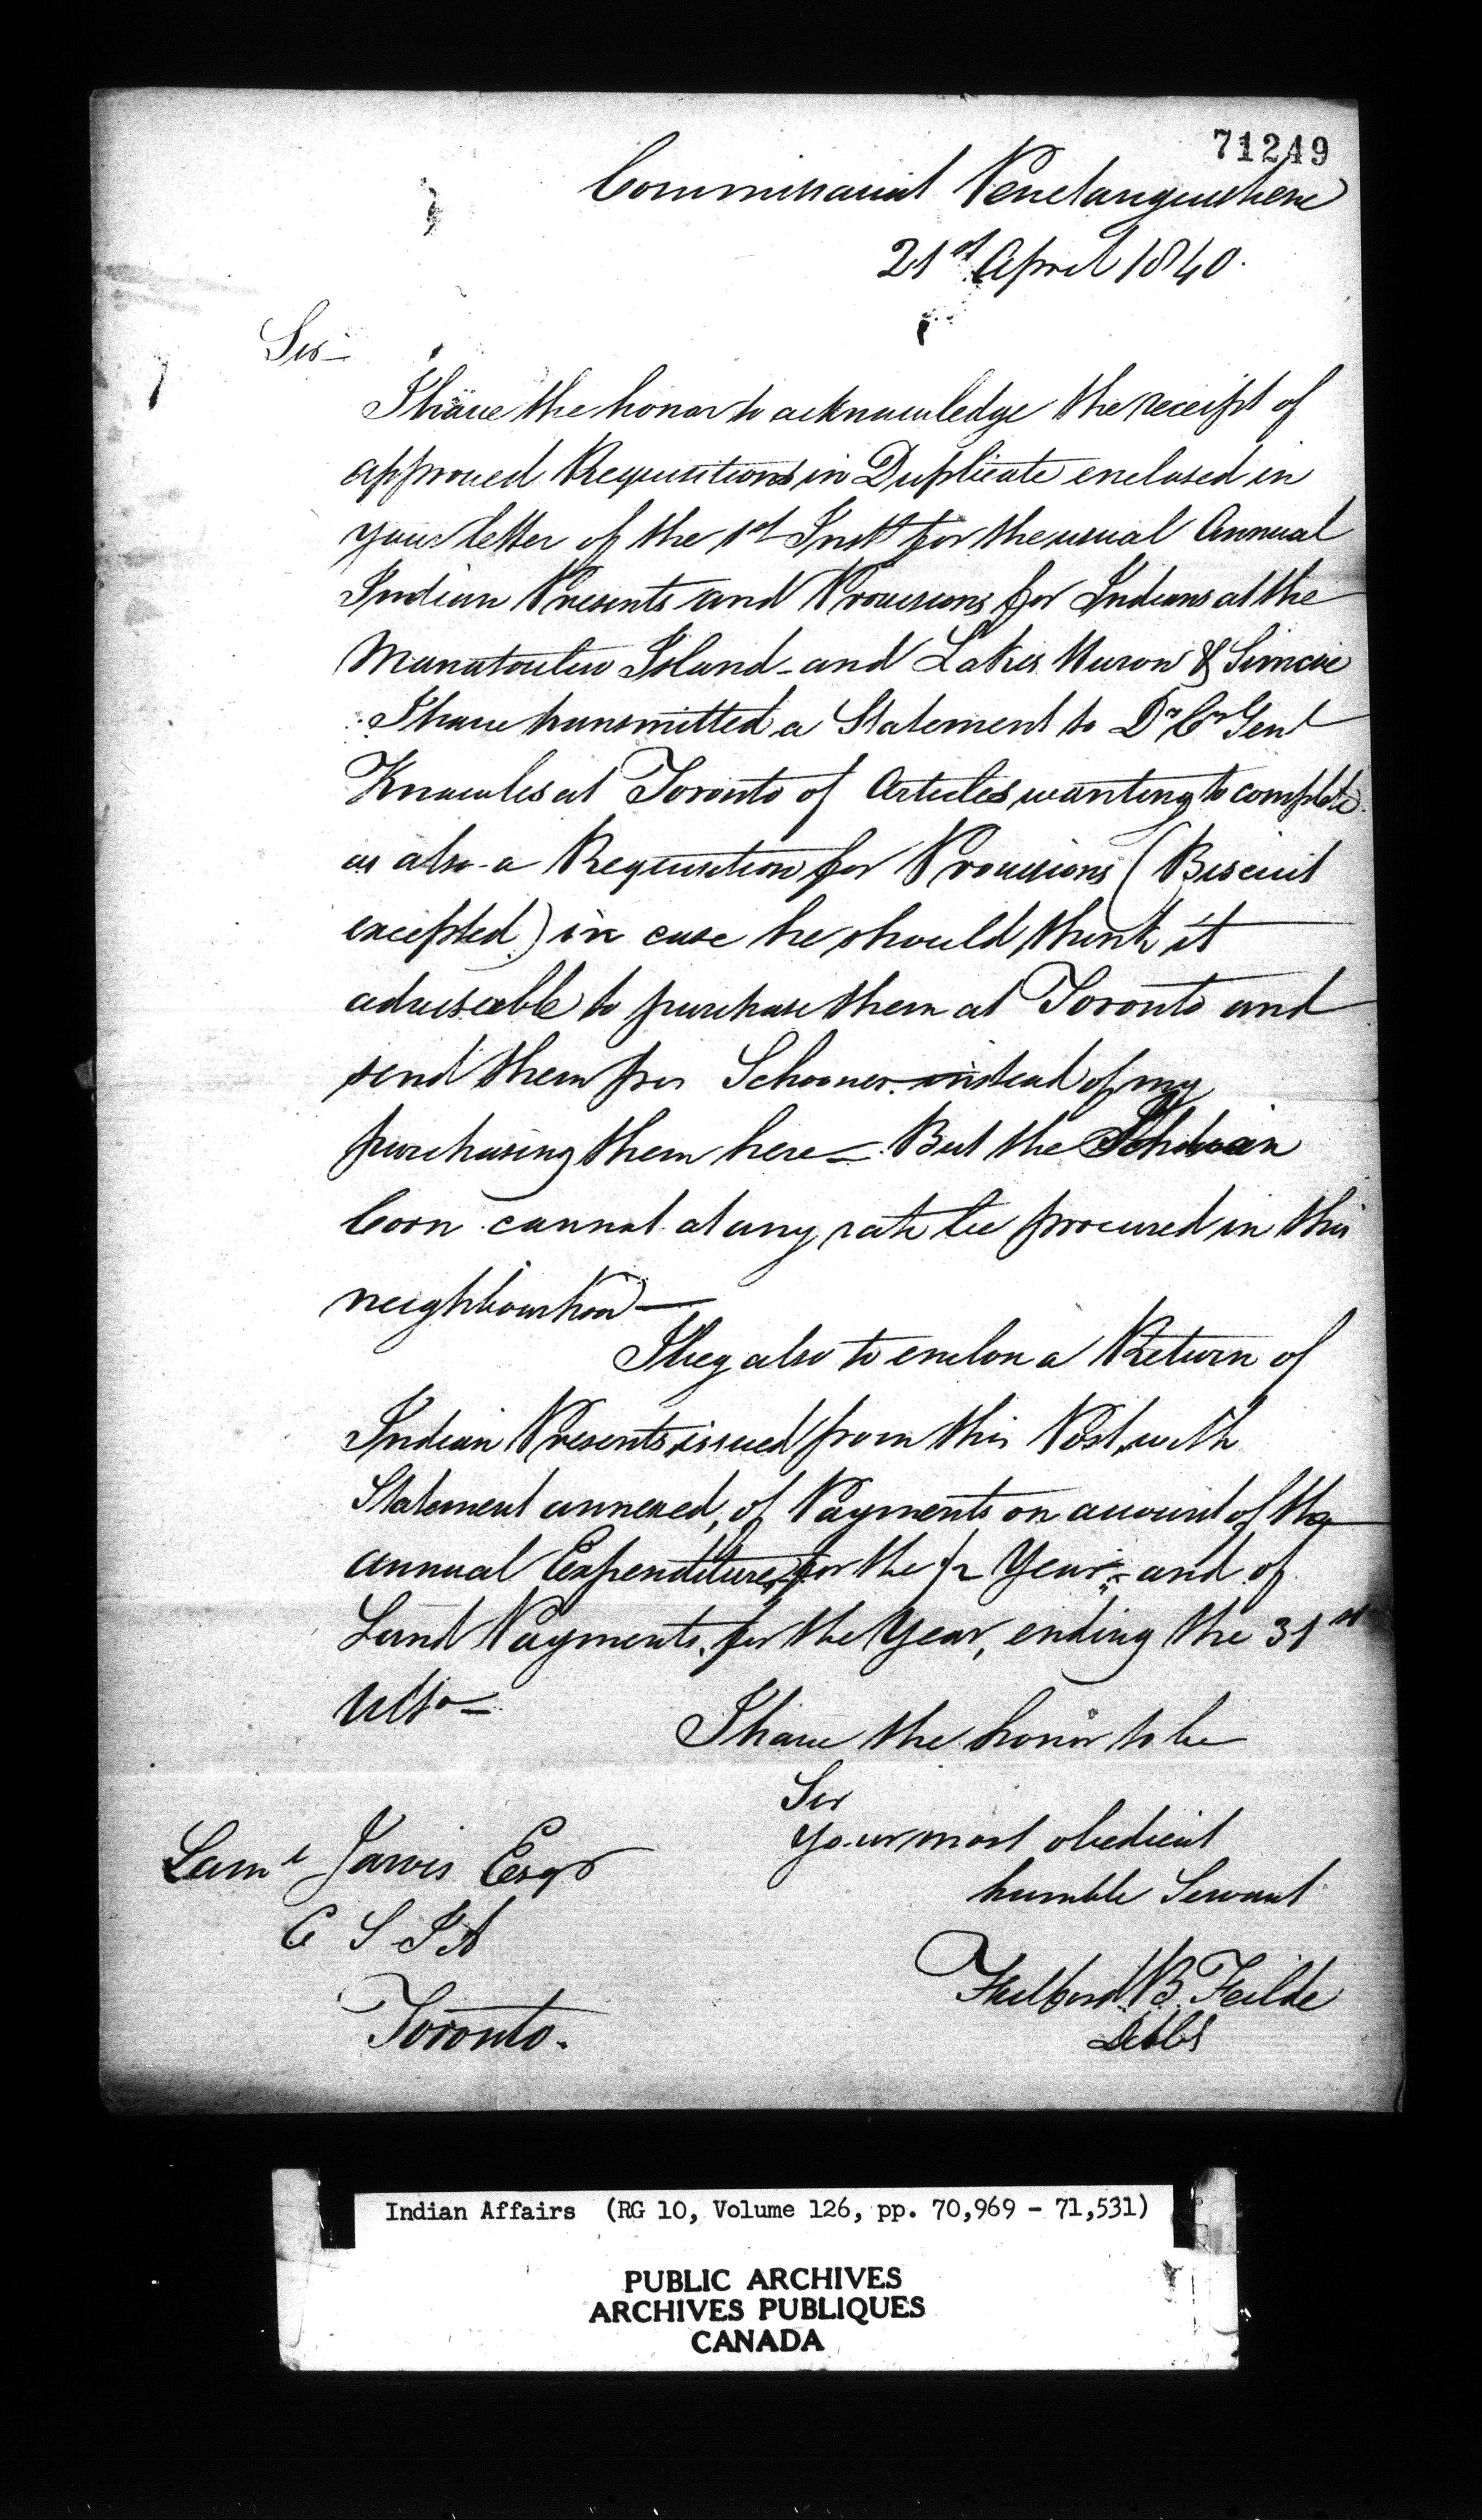 71249
Commissariat Penetanguishene
21st April 1840.
Sir
I have the honor to acknowledge the receipt of
approved Requisitions in Duplicate enclosed in
your letter of the 1st Inst for the usual Annual
Indian Presents and Provisions for Indians at the
Manatoulin Island - and Lakes Huron & Simcoe
I have transmitted a Statement to Dy Cy Genl
Knowles at Toronto of Articles wanting to complete
as also a Requisition for Provisions (Biscuit
excepted) in case he should think it
adviseable to purchase them at Toronto and
send them per Schooner instead of my
purchasing them here - But the Indian
Corn cannot at any rate be procured in this
neighbourhood —
I beg also to enclose a Return of
Indian Presents issued from this Post, with
Statement annexed, of Payments on account of the
annual Expenditure for the 1/2 Year - and of
Land Payments. for the Year, ending the 31st
Ulto -
I have the honor to be
Sir
Your most obedient
humble Servant
Saml Jarvis Esqr
C S I A
Toronto.
B. Feilde
Indian Affairs (RG 10, Volume 126, pp. 70,969 - 71,531)
PUBLIC ARCHIVES
ARCHIVES PUBLIQUES
CANADA